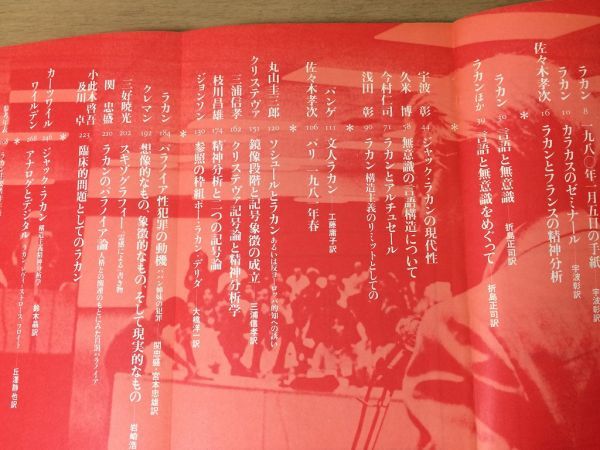 ラカン 8 一九八〇年一月五日の手紙 宇波彰訳
ラカン 10 カラカスのゼミナール 宇波彰訳
佐々木孝次 16 ラカンとフランスの精神分析
*
ラカン 30 言語と無意識 折島正司訳
ラカンほか 39 言語と無意識をめぐって 折島正司訳
*
宇波 彰 44 ジャック・ラカンの現代性
久米 博 58 無意識の言語構造について
今村仁司 71 ラカンとアルチュセール
浅田 彰 96 ラカン 構造主義のリミットとしての
*
パンゲ 111 文人ラカン 工藤庸子訳
佐々木孝次 106 パリ 一九八一年春
*
丸山圭三郎 120 ソシュールとラカン あるいは反ヨーロッパ的知への誘い
クリステヴァ 151 鏡像段階と記号象徴の成立 三浦信孝訳
三浦信孝 162 クリステヴァ記号論と精神分析学
枝川昌雄 174 精神分析と二つの記号論
ジョンソン 139 参照の枠組 ポー・ラカン・デリダ 大橋洋一訳
*
ラカン 184 パラノイア性犯罪の動機 パパン姉妹の犯罪 関忠盛・宮本忠雄訳
クレマン 192 想像的なもの、象徴的なもの、そして現実的なもの 岩崎浩
三好暁光 202 スキゾグラフィー
関 忠盛 210 ラカンのパラノイア論
小此木啓吾
及川 卓 223 臨床的問題としてのラカン
*
カーツワイル 246 ジャック・ラカン 鈴木晶訳
ワイルデン 268 アナログとデジタル 丘澤静也訳